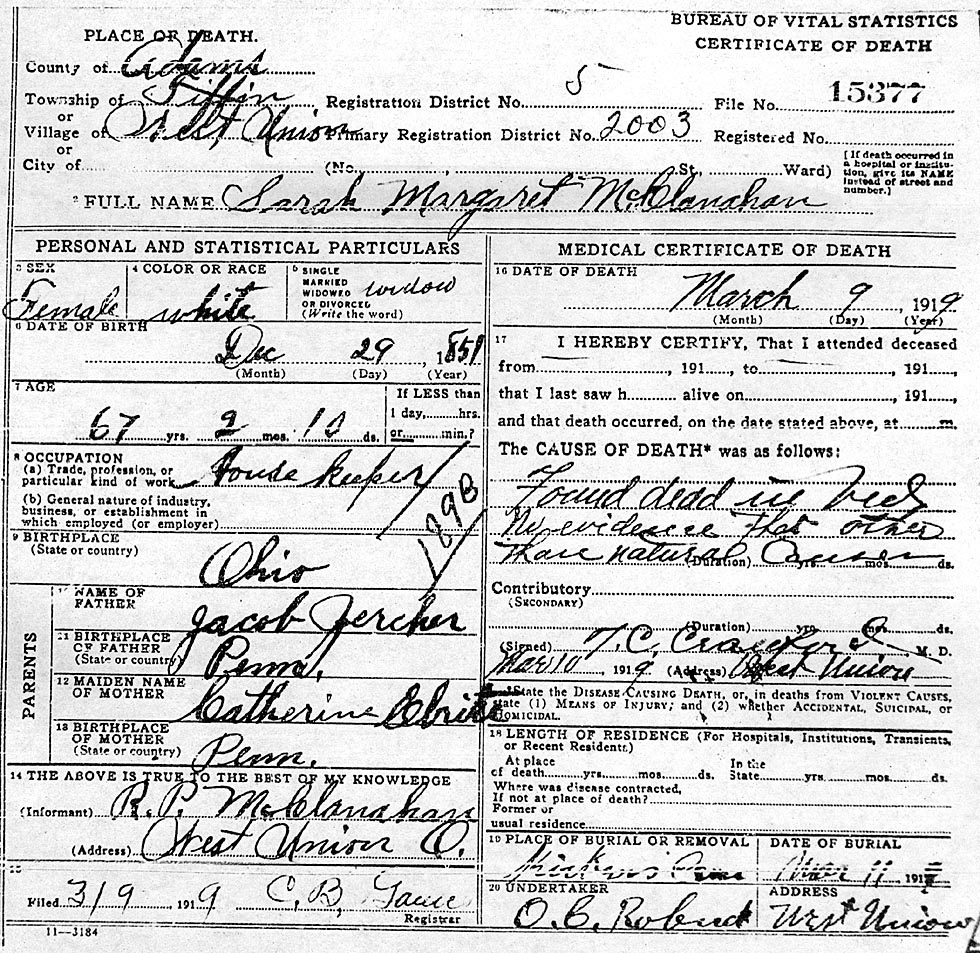 BUREAU OF VITAL STATISTICS
CERTIFICATE OF DEATH
PLACE OF DEATH.
County of Adams
Township of Tiffin Registration District No. 5 File No. 15377
or
Village of West Union Primary Registration District No. 2003 Registered No.
or
City of (No. St. Ward)
[If death occurred in a hospital or institution, give its NAME instead of street and number.]
2 FULL NAME Sarah Margaret McClanahan
PERSONAL AND STATISTICAL PARTICULARS
3 SEX
Female
4 COLOR OR RACE
white
5 SINGLE
MARRIED
WIDOWED
OR DIVORCED
(Write the word)
widow
6 DATE OF BIRTH
Dec 29, 1851
(Month) (Day) (Year)
7 AGE
67 yrs. 2 mos. 10 ds.
If LESS than
1 day, hrs.
or min.?
8 OCCUPATION
(a) Trade, profession, or
particular kind of work House keeper
(b) General nature of industry,
business, or establishment in
which employed (or employer)
189B
9 BIRTHPLACE
(State or country)
Ohio
PARENTS
10 NAME OF
FATHER
Jacob
11 BIRTHPLACE
OF FATHER
(State or country)
Penn.
12 MAIDEN NAME
OF MOTHER
Catherine
13 BIRTHPLACE
OF MOTHER
(State or country)
Penn.
14 THE ABOVE IS TRUE TO THE BEST OF MY KNOWLEDGE
(Informant) R. P. McClanahan
(Address) West Union O.
15
Filed 3/9 1919 C. B.
Registrar
11—3184
MEDICAL CERTIFICATE OF DEATH
16 DATE OF DEATH
March 9, 1919
(Month) (Day) (Year)
17 I HEREBY CERTIFY, That I attended deceased
from , 191 , to , 191 ,
that I last saw h alive on , 191 ,
and that death occurred, on the date stated above, at m.
The CAUSE OF DEATH* was as follows:
Found dead in bed
No evidence that other
than natural causes
(Duration) yrs. mos. ds.
Contributory
(SECONDARY)
(Duration) yrs. mos. ds.
(Signed) T. C. Crawford, M. D.
Mar 10 1919 (Address) West Union
*State the DISEASE CAUSING DEATH, or, in deaths from VIOLENT CAUSES,
state (1) MEANS OF INJURY; and (2) whether ACCIDENTAL, SUICIDAL, or
HOMICIDAL.
18 LENGTH OF RESIDENCE (For Hospitals, Institutions, Transients,
or Recent Residents.)
At place
of death yrs. mos. ds.
In the
State yrs. mos. ds.
Where was disease contracted,
If not at place of death?
Former or
usual residence
19 PLACE OF BURIAL OR REMOVAL
DATE OF BURIAL
Mar 11 191
20 UNDERTAKER
O. C.
ADDRESS
West Union